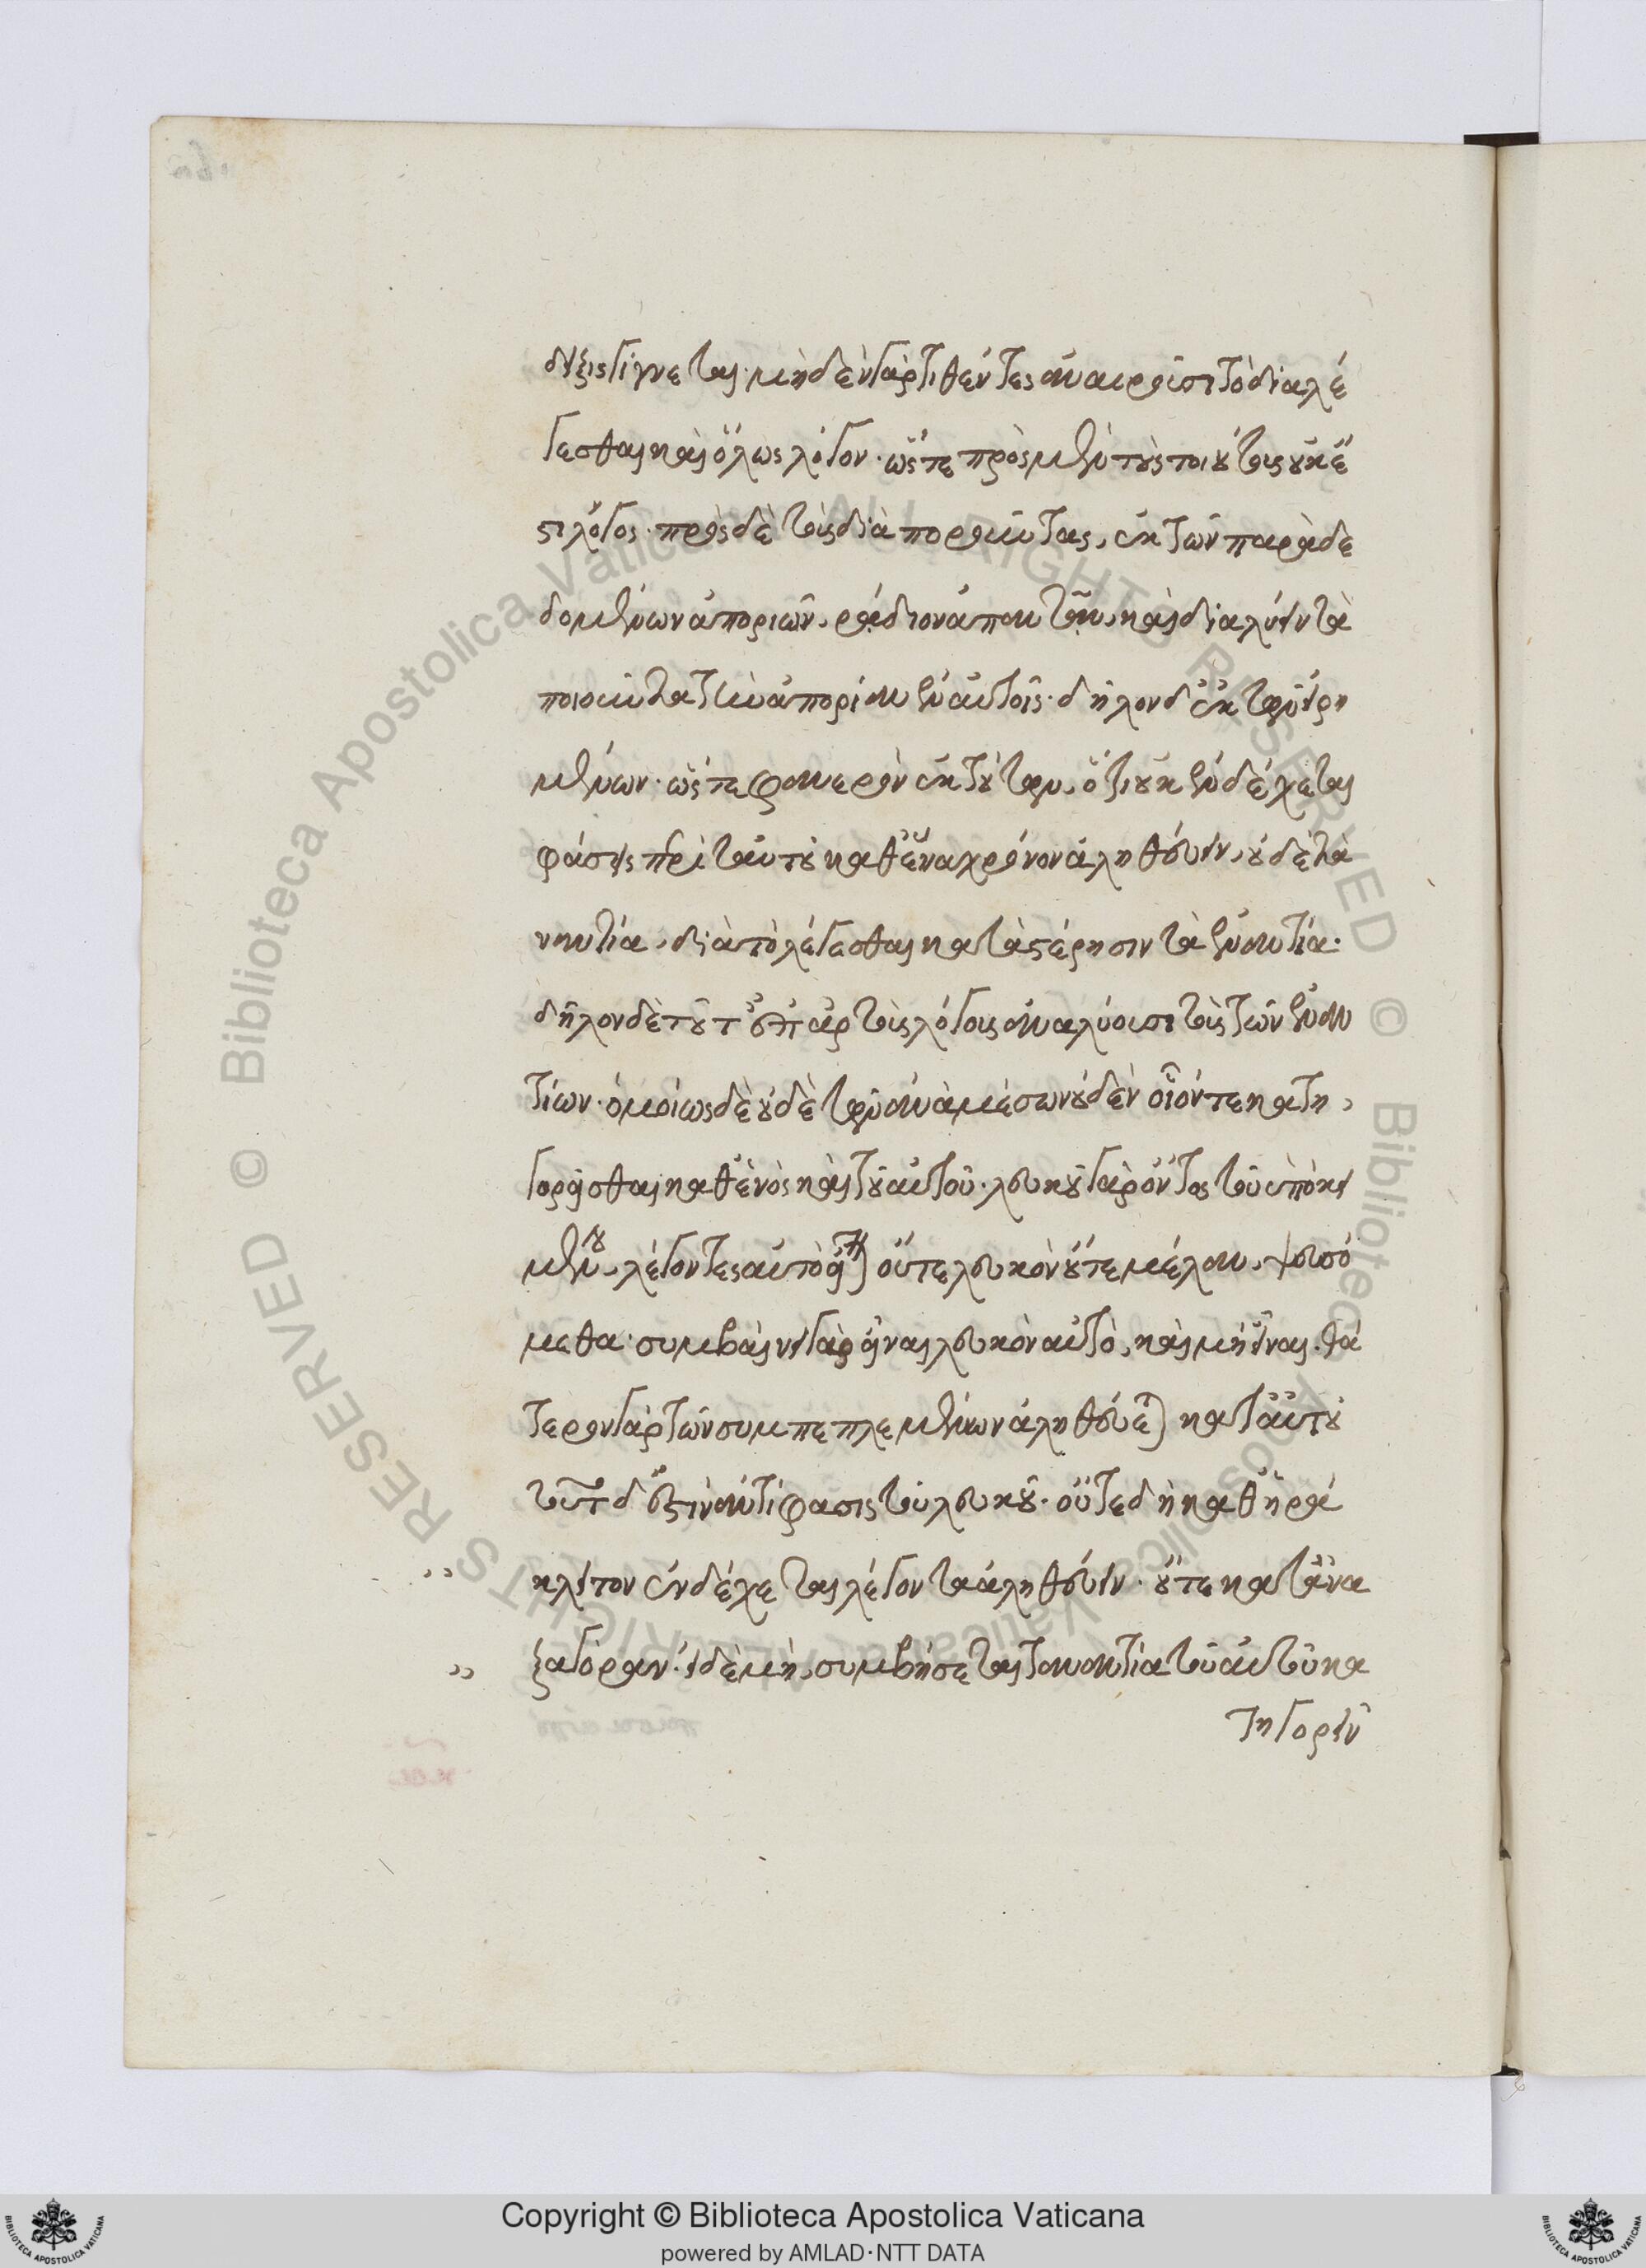 δειξις γίγνεται· μηδὲν γὰρ τιθέντες ἀναιροῦσι τὸ διαλέ
γεσθαι καὶ ὅλως λόγον· ὥστε πρὸς μὲν τοὺς τοιούτους οὐκ ἔ
στι λόγος· πρὸς δὲ τοὺς διαποροῦντας, ἐκ τῶν παραδε
δομένων ἀποριῶν, ῥάδιον ἀπαντᾶν, καὶ διαλύειν τὰ
ποιοῦντα τὴν ἀπορίαν ἐν αὐτοῖς· δῆλον δ' ἐκ τῶν εἰρη
μένων· ὥστε φανερὸν ἐκ τούτων, ὅτι οὐκ ἐνδέχεται
φάσεις περὶ ταὐτοῦ καθ' ἕνα χρόνον ἀληθεύειν, οὐδὲ τὰ
ναντία, διὰ τὸ λέγεσθαι κατὰ στέρησιν τὰ ἐναντία·
δῆλον δὲ τοῦτ' ἐπ' ἀρ τοὺς λόγους ἀναλύουσι τοὺς τῶν ἐναν
τίων· ὁμοίως δὲ οὐδὲ τῶν ἀνὰ μέσων οὐδὲν οἷόν τε κατη
γορεῖσθαι καθ' ἑνὸς καὶ τοῦ αὐτοῦ· λευκοῦ γὰρ ὄντος τοῦ ὑποκει
μένου, λέγοντες αὐτὸ εἶναι οὔτε λευκὸν οὔτε μέλαν, ψευσό
μεθα· συμβαίνει γὰρ εἶναι λευκὸν αὐτὸ, καὶ μὴ εἶναι. θά
τερον γὰρ τῶν συμπεπλεμένων ἀληθεύεται κατ' αὐτοῦ
τοῦτο δ' ἐστὶν ἀντίφασις τοῦ λευκοῦ· οὔτε δὴ καθ' ἡρά
κλειτον ἐνδέχεται λέγοντα ἀληθεύειν· οὔτε κατ' ἀνα
ξαγόραν· εἰ δὲ μὴ, συμβήσεται τἀναντία τοῦ αὐτοῦ κα
τηγορεῖν
Copyright © Biblioteca Apostolica Vaticana
powered by AMLAD·NTT DATA